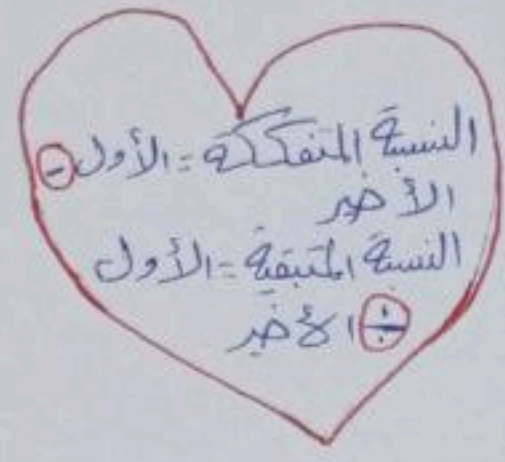 النسبة المتفككة = الأول -
الأخير
النسبة المتبقية = الأول
÷ الأخير